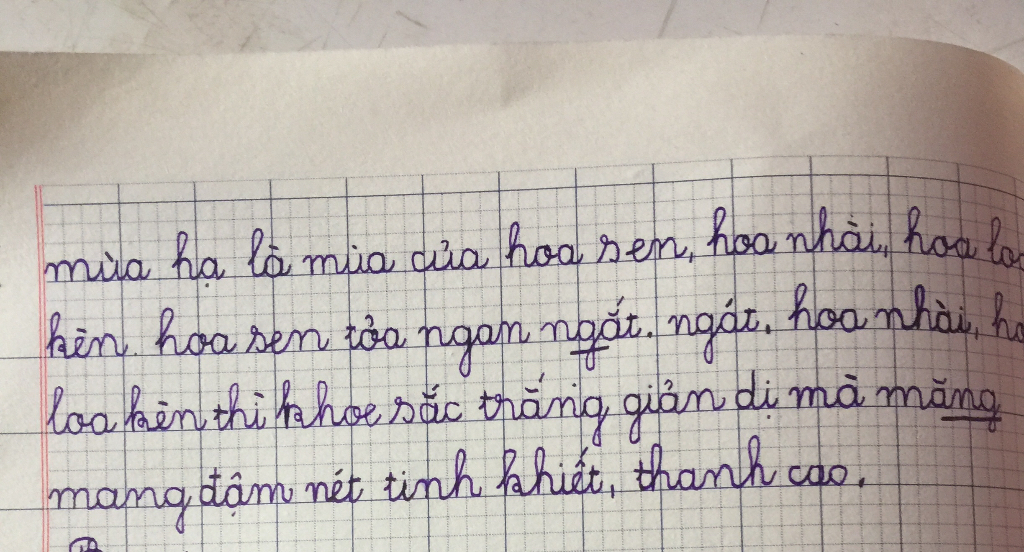 mùa hạ là mùa của hoa sen, hoa nhài, hoa loa
kèn. hoa sen tỏa ngan ngát. ngát. hoa nhài, ho
loa kèn thì khoe sắc trắng giản dị mà măng
mang đậm nét tinh khiết, thanh cao.